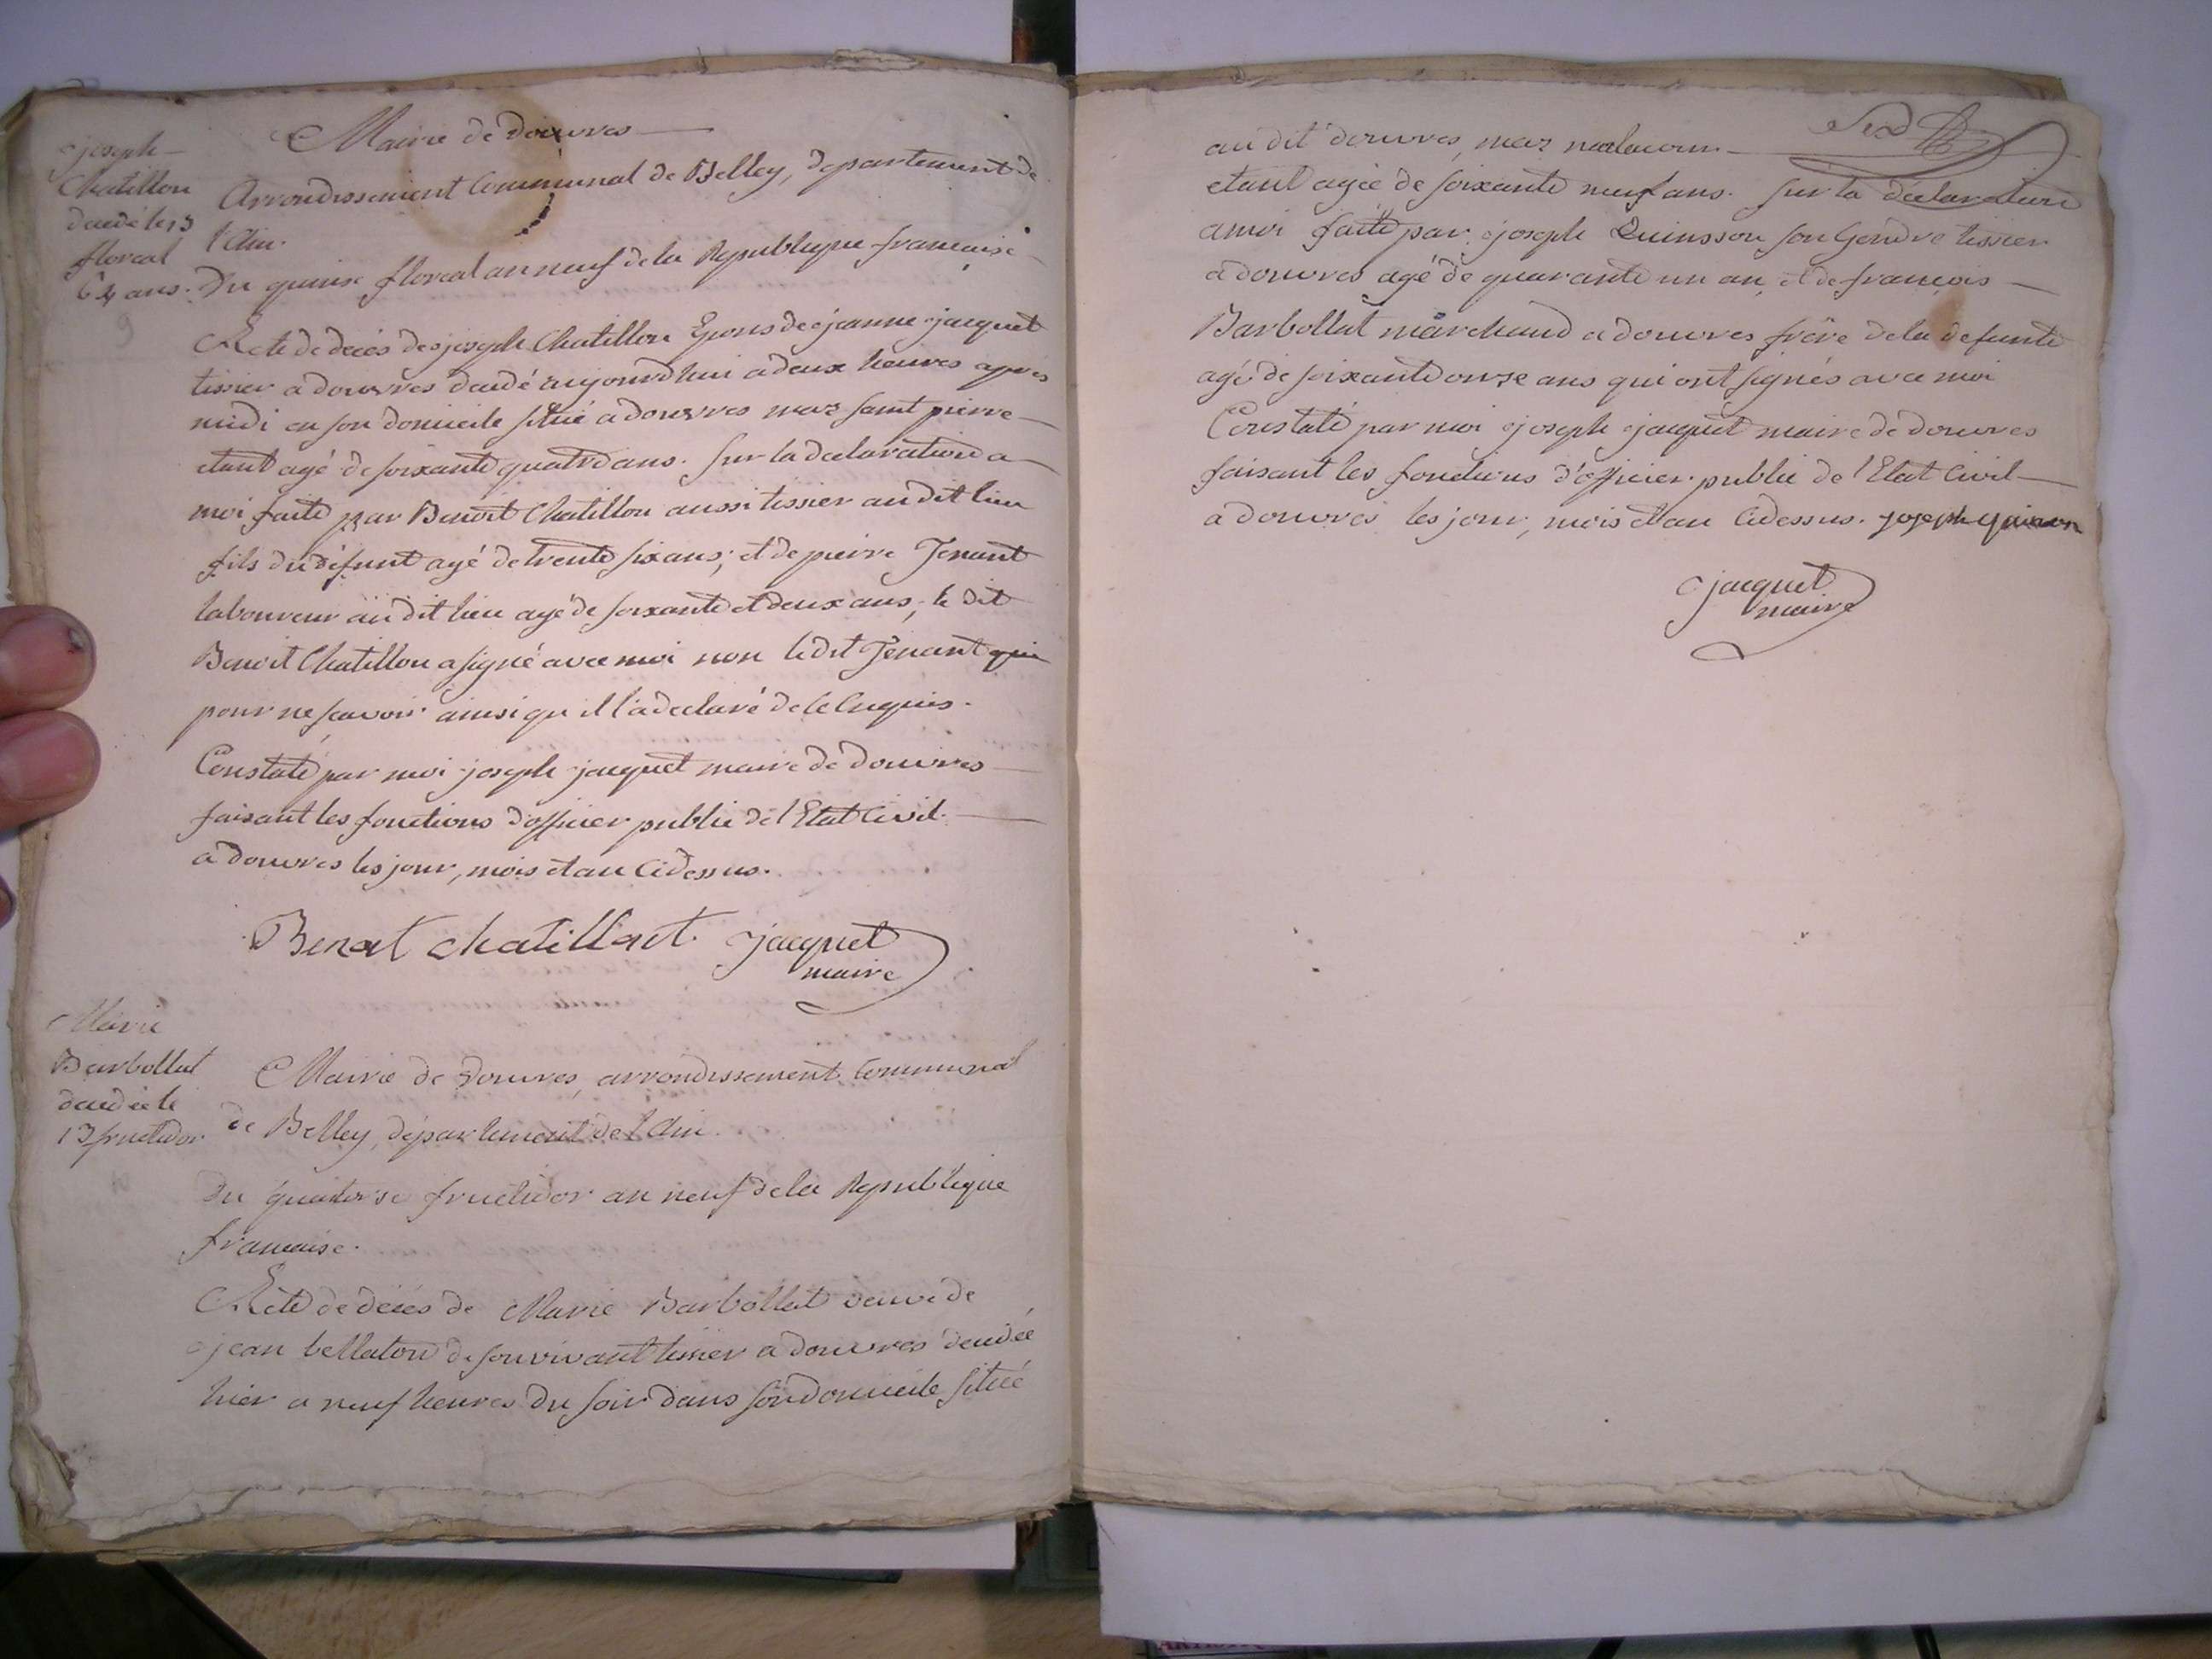 joseph
Chatillon
decedé le 15
floreal
64 ans.
Mairie de douvres
Arrondissement Communal de Belley, departement de
l'Ain.
Du quinse floreal an neuf de la Republique francaise
Acte de decés de joseph Chatillon Epous de jeanne jacquet
tissier a douvres decedé aujourd'hui a deux heures apres
midi en son domicile situé a douvres mas saint pierre
etant agé de soixante quatre ans. Sur la declaration a
moi faite par Benoit Chatillon aussi tissier au dit lieu
fils du défunt agé de trente six ans; et de pierre Tenant
laboureur au dit lieu agé de soixante et deux ans, le dit
Benoit Chatillon a signé avec moi non le dit Tenant qui
pour ne scavoir ainsi qu il l'a declaré de ce Enquis.
Constaté par moi joseph jacquet maire de douvres
faisant les fonctions d'officier public de l'Etat Civil
a douvres les jour, mois et an Cidessus.
Benoit chatillont. jacquet
maire
Marie
Barbollat
decedée le
13 fructidor
Mairie de douvres, arrondissement Communal
de Belley, département de l'Ain.
Du quatorse fructidor an neuf de la Republique
francaise.
Acte de décés de Marie Barbollat veuve de
jean bellaton de son vivant tissier a douvres decedée
hier a neuf heures du soir dans son domicile situé
au dit douvres, mas
etant agée de soixante neuf ans. Sur la declaration
a moi faite par joseph Quinsson son Gendre tissier
a douvres agé de quarante un an, et de francois
Barbollat marchand a douvres frére de la defunte
agé de soixante onze ans qui ont signés avec moi
Constaté par moi joseph jacquet maire de douvres
faisant les fonctions d'officier public de l'Etat Civil
a douvres les jour, mois et an Cidessus. joseph quinson
jacquet
maire